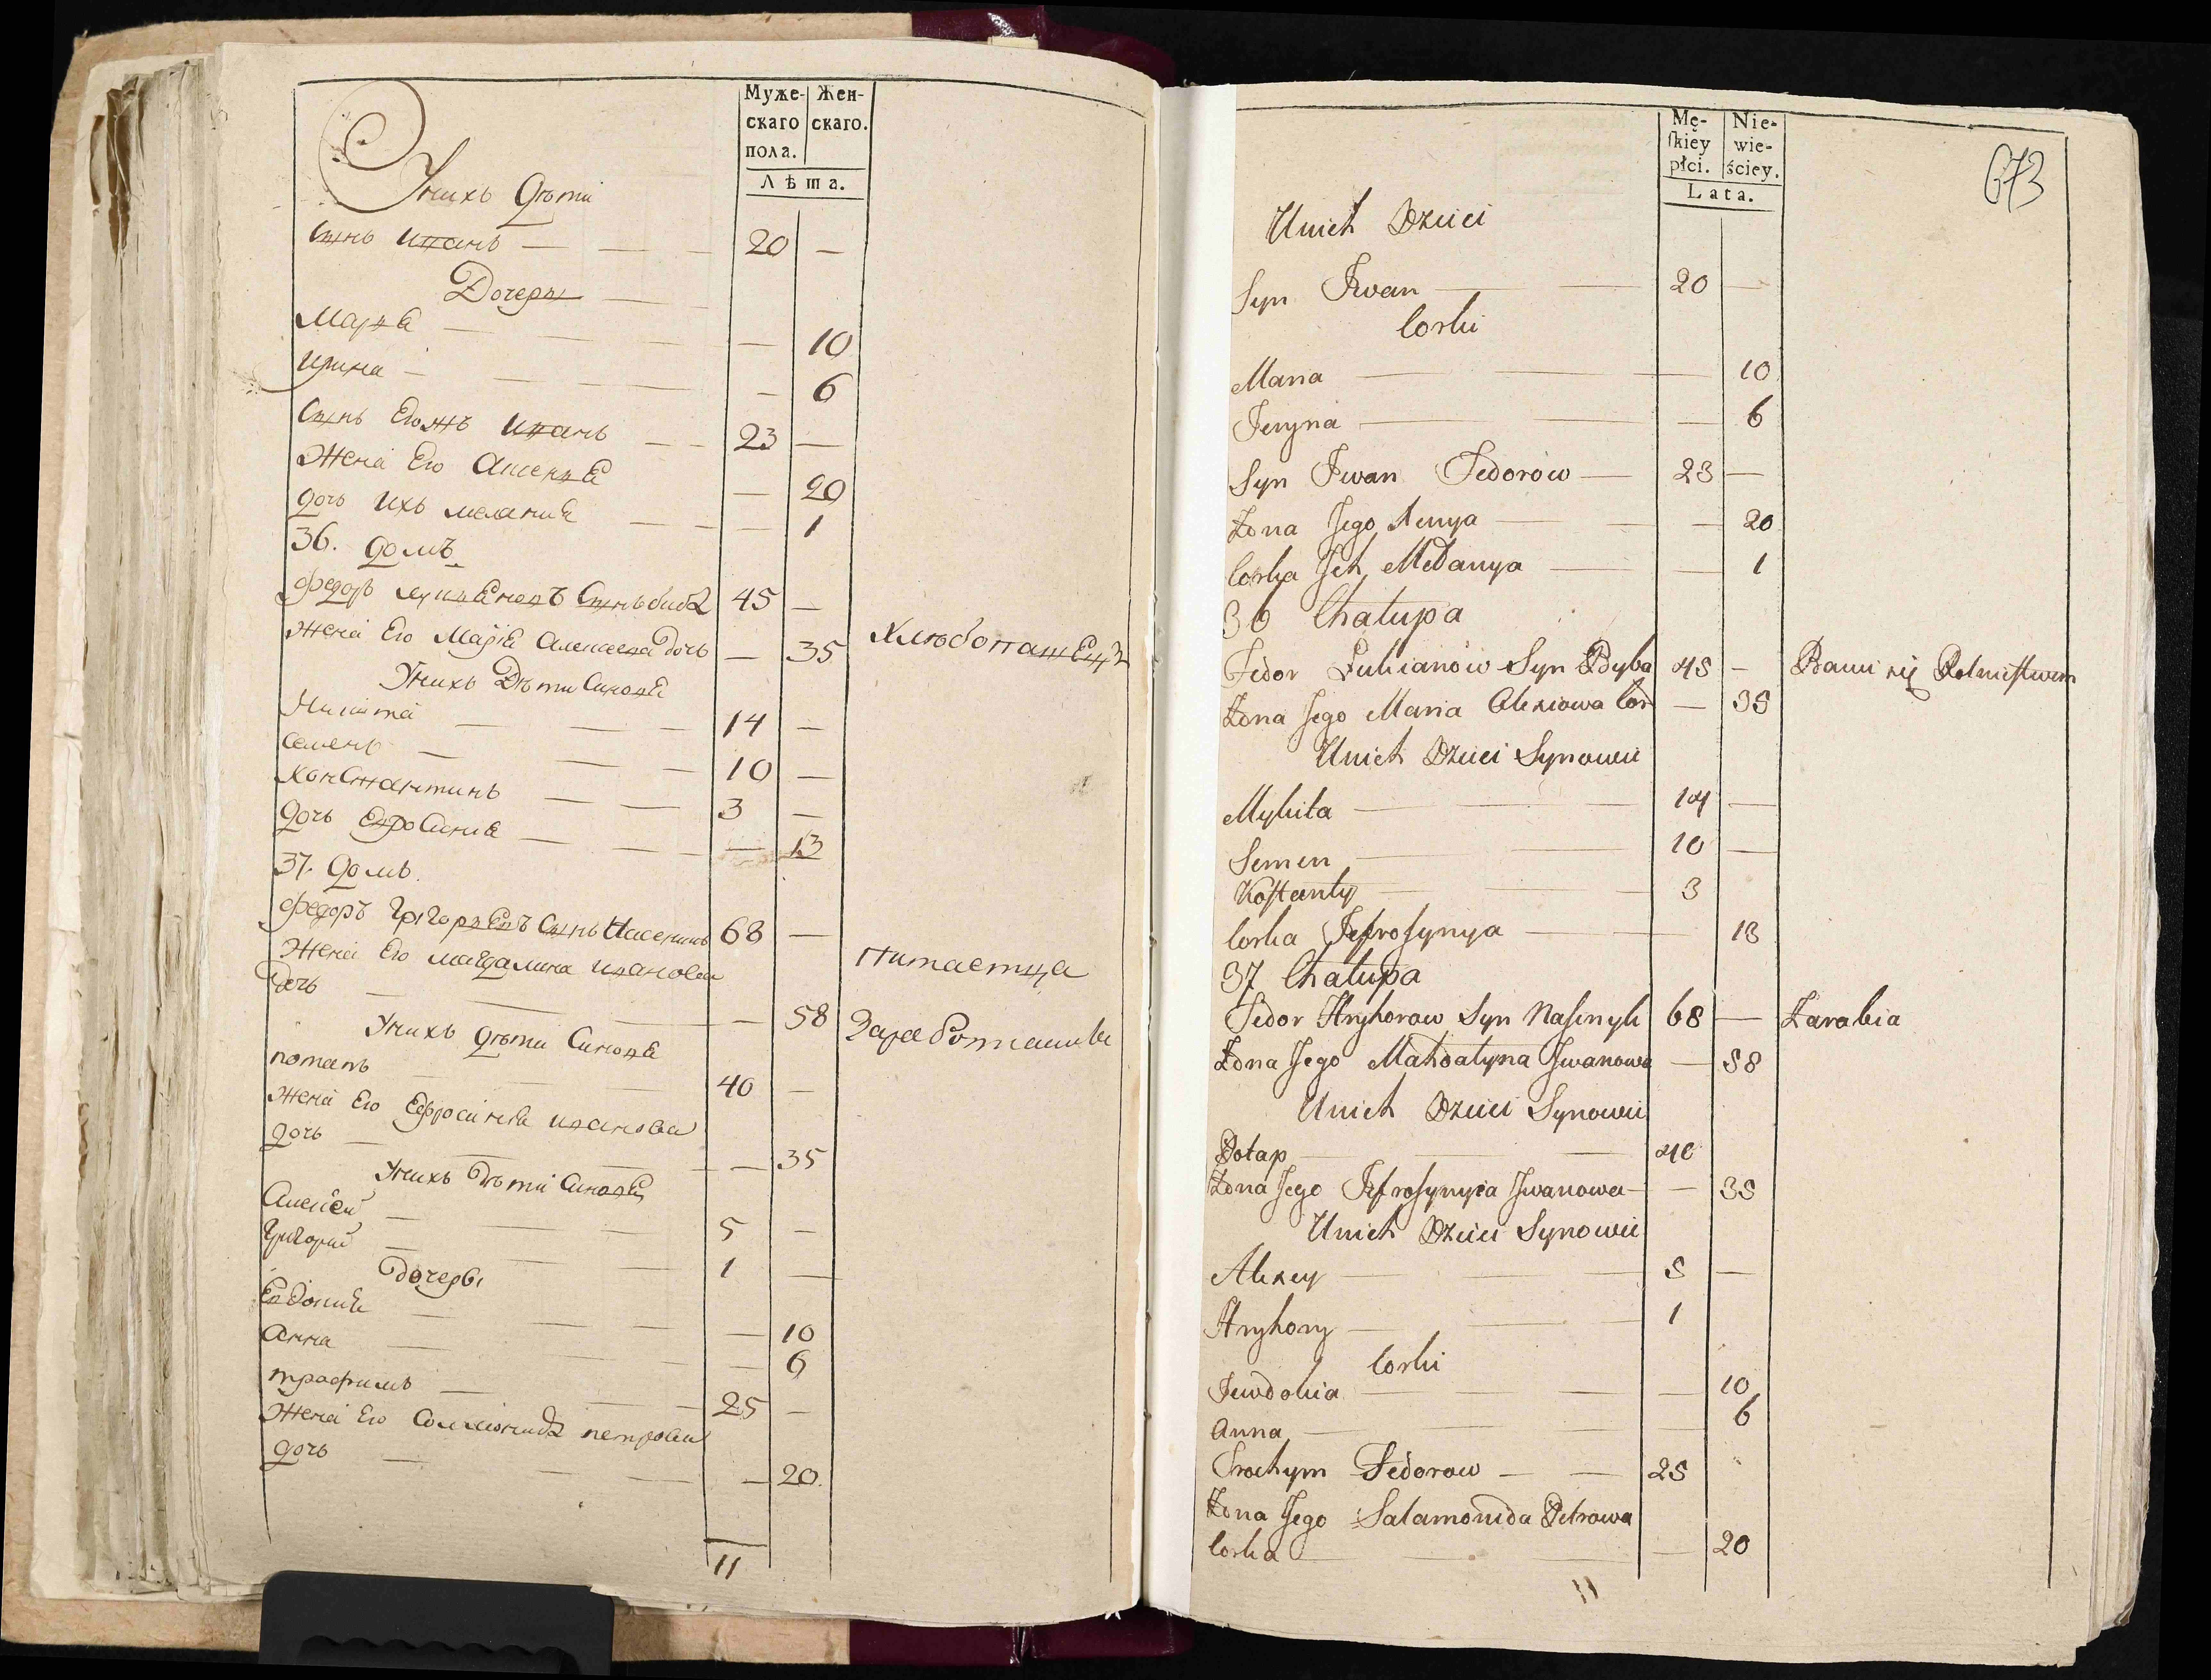 Муже- Жен-
скаго скаго.
пола.
Лѣта.
Унихъ Дѣти
Сынъ Иванъ — 20 —
Дочеры
Марья — — 10
Ирина — — 6
Сынъ Егожъ Иванъ — 23 —
Жена Его Аксенья — 20
дочь Ихъ мелания — — 1
36. домъ
федоръ лукьеновъ Сынъ 45 —
Жена Его Марія Алексеева Дочь — 35 Хлебопашецъ
Унихъ Дѣти Синовя
Никита — 14 —
Семенъ — 10 —
Константинъ — 3 —
дочь Ефросиния — — 13
37. домъ
федоръ Григорьевъ Сынъ 68 —
Жена Его магдалина Иванова
Дочь — — 58 Питаетца Заработками
Унихъ дѣти Синовя
потапъ — 40 —
Жена Его Ефросиния Иванова
дочь — — 35
Унихъ Дѣти Синовя
Алексей — 5 —
Григорий — 1 —
Дочеры
Евдокия — — 10
Анна — — 6
трафимъ — 25 —
Жена Его Соломонида петрова
дочь — — 20.
11
673
Mę- Nie-
ſkiey wie-
płci. ściey.
Lata.
Unich Dzieci
Syn Iwan — 20 —
Corki
Maria — 10
Jeryna — — 6
Syn Iwan Fedorow — 23 —
Żona Jego — — 20
Corka Jch Melanya — — 1
36 Chałupa
Fedor Łukianow Syn 45 — Bawi się Rolnictwem
Żona Jego Maria Alexiowa Cor — 35
Unich Dzieci Synowie
Mykita — 14 —
Semen — 10 —
Koſtanty — 3
Corka Jefroſynya — 13
37 Chałupa
Fedor Hryhorow Syn Naſinyk 68 — Zarabia
Żona Jego Mahdalyna Jwanowa — 58
Unich Dzieci Synowie
Potap — 40
Żona Jego Jefroſynyia Jwanowa — — 35
Unich Dzieci Synowie
Alexey — 5 —
Hryhory — 1
Corki
Jewdokia — — 10
Anna — 6
Trochym Fedorow — 25
Żona Jego Salamonida Petrowa
Corka — — 20
11